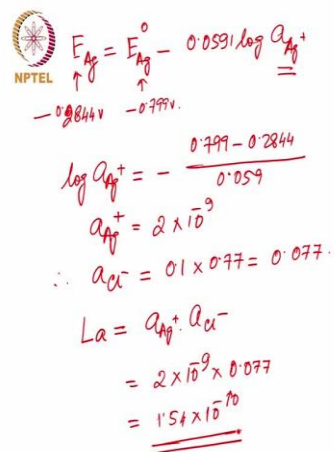 E_Ag = E°_Ag − 0.0591 log a_Ag⁺
NPTEL
↑ ↑
−0.2844v −0.799v.
log a_Ag⁺ = − (0.799 − 0.2844) / 0.059
a_Ag⁺ = 2 × 10⁻⁹
∴ a_Cl⁻ = 0.1 × 0.77 = 0.077.
La = a_Ag⁺ . a_Cl⁻
= 2 × 10⁻⁹ × 0.077
= 1.54 × 10⁻¹⁰